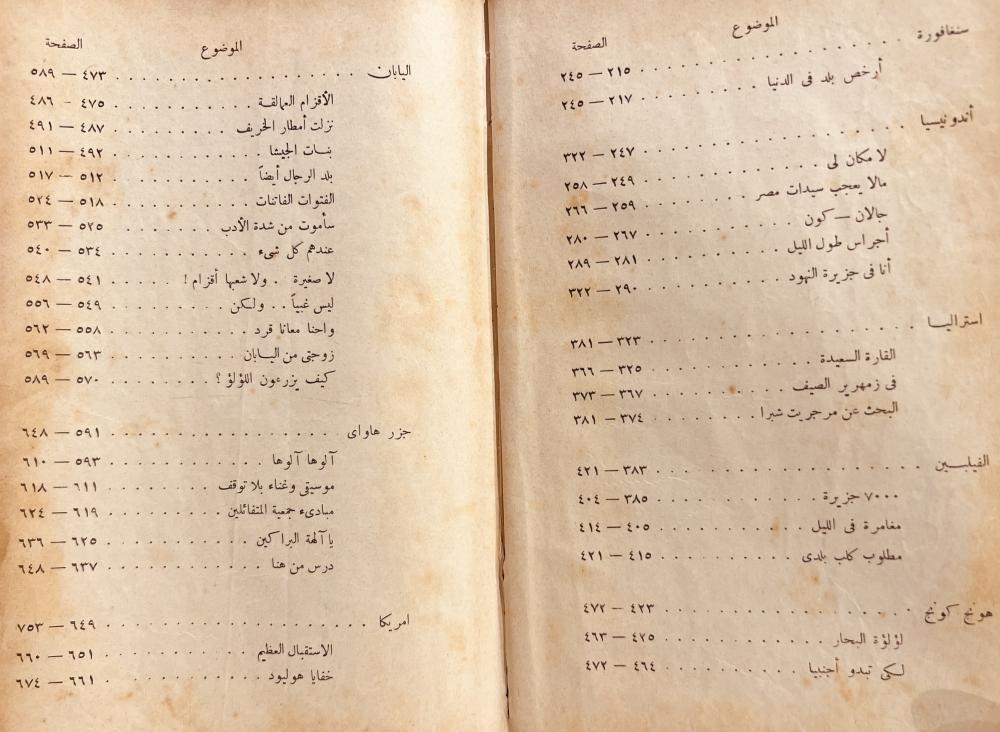 الموضوع الصفحة
سنغافورة . . . . . . . . . . . . . . . . ٢١٥ — ٢٤٥
أرخص بلد فى الدنيا . . . . . . . . . ٢١٧ — ٢٤٥
أندونيسيا . . . . . . . . . . . . . . . . ٢٤٧ — ٣٢٢
لا مكان لى . . . . . . . . . . . . ٢٤٩ — ٢٥٨
مالا يعجب سيدات مصر . . . . . . . . ٢٥٩ — ٢٦٦
جالان — كون . . . . . . . . . . . ٢٦٧ — ٢٨٠
أجراس طول الليل . . . . . . . . . . ٢٨١ — ٢٨٩
أنا فى جزيرة النهود . . . . . . . . . ٢٩٠ — ٣٢٢
استراليا . . . . . . . . . . . . . . . . ٣٢٣ — ٣٨١
القارة السعيدة . . . . . . . . . . . ٣٢٥ — ٣٦٦
فى زمهرير الصيف . . . . . . . . . . ٣٦٧ — ٣٧٣
البحث عن مرجريت شبرا . . . . . . . . ٣٧٤ — ٣٨١
الفيلبين . . . . . . . . . . . . . . . . ٣٨٣ — ٤٢١
٧٠٠٠ جزيرة . . . . . . . . . . . . ٣٨٥ — ٤٠٤
مغامرة فى الليل . . . . . . . . . . . ٤٠٥ — ٤١٤
مطلوب كلب بلدى . . . . . . . . . . ٤١٥ — ٤٢١
هونج كونج . . . . . . . . . . . . . . . ٤٢٣ — ٤٧٢
لؤلؤة البحار . . . . . . . . . . . . ٤٢٥ — ٤٦٣
لكى تبدو أجنبيا . . . . . . . . . . . ٤٦٤ — ٤٧٢
الموضوع الصفحة
اليابان . . . . . . . . . . . . . . . . . ٤٧٣ — ٥٨٩
الأقزام العمالقة . . . . . . . . . . . ٤٧٥ - ٤٨٦
نزلت أمطار الخريف . . . . . . . . . ٤٨٧ — ٤٩١
بنات الجيشا . . . . . . . . . . . . ٤٩٢ — ٥١١
بلد الرجال أيضاً . . . . . . . . . . . ٥١٢ — ٥١٧
الفتوات الفاتنات . . . . . . . . . . ٥١٨ — ٥٢٤
سأموت من شدة الأدب . . . . . . . . . ٥٢٥ — ٥٣٣
عندهم كل شىء . . . . . . . . . . . ٥٣٤ — ٥٤٠
لا صغيرة . . ولا شعبها أقزام ! . . . . . ٥٤١ — ٥٤٨
ليس غبياً . . ولكن . . . . . . . . . ٥٤٩ — ٥٥٦
واحنا معانا قرد . . . . . . . . . . . ٥٥٨ — ٥٦٢
زوجتى من اليابان . . . . . . . . . . ٥٦٣ — ٥٦٩
كيف يزرعون اللؤلؤ ؟ . . . . . . . . ٥٧٠ — ٥٨٩
جزر هاواى . . . . . . . . . . . . . . . ٥٩١ — ٦٤٨
آلوها آلوها . . . . . . . . . . . . ٥٩٣ — ٦١٠
موسيقى وغناء بلا توقف . . . . . . . . ٦١١ — ٦١٨
مبادىء جمعية المتفائلين . . . . . . . . ٦١٩ — ٦٢٤
يا آلهة البراكين . . . . . . . . . . . ٦٢٥ — ٦٣٦
درس من هنا . . . . . . . . . . . . ٦٣٧ — ٦٤٨
امريكا . . . . . . . . . . . . . . . . . ٦٤٩ — ٧٥٣
الاستقبال العظيم . . . . . . . . . . ٦٥١ — ٦٦٠
خفايا هوليود . . . . . . . . . . . . ٦٦١ — ٦٧٤